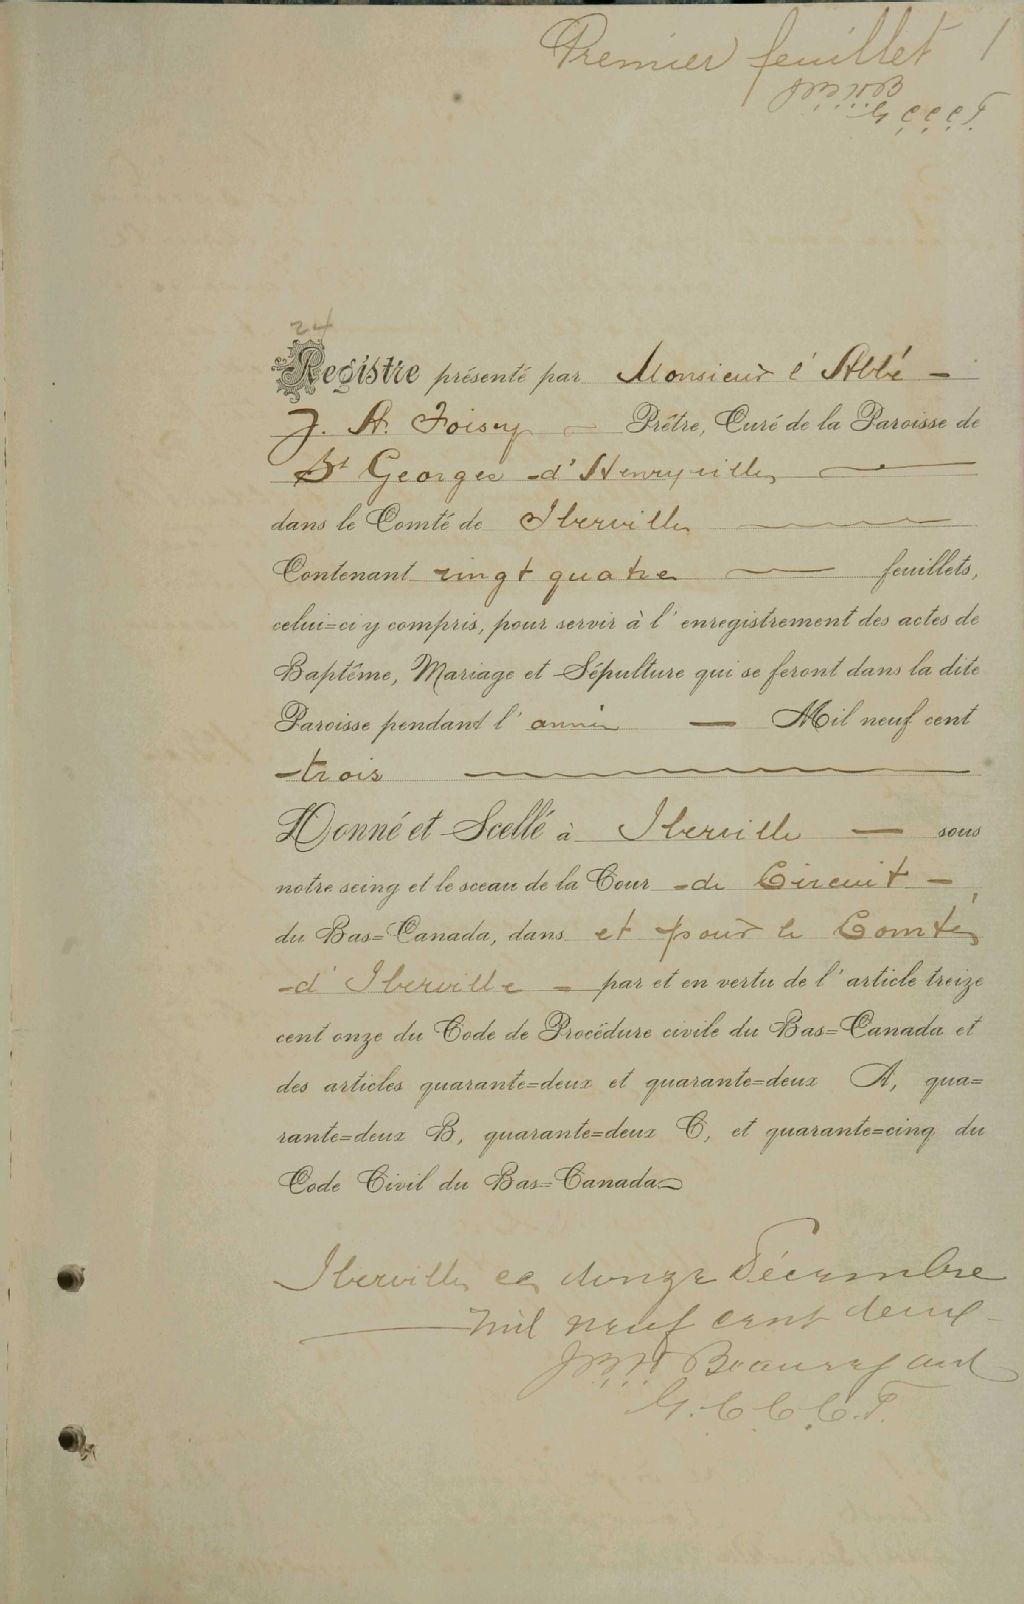 Premier feuillet 1
G. C. C. C. T.
24
Registre présenté par Monsieur l'Abbé
J. A. Foisy Prêtre, Curé de la Paroisse de
St Georges d'Henryville
dans le Comté de Iberville
Contenant vingt quatre feuillets,
celui=ci y compris, pour servir à l'enregistrement des actes de
Baptême, Mariage et Sépulture qui se feront dans la dite
Paroisse pendant l'année Mil neuf cent
trois
Donné et Scellé à Iberville sous
notre seing et le sceau de la Cour de Circuit
du Bas=Canada, dans et pour le Comté
d'Iberville par et en vertu de l'article treize
cent onze du Code de Procédure civile du Bas=Canada et
des articles quarante=deux et quarante=deux A, qua=
rante=deux B, quarante=deux C, et quarante=cinq du
Code Civil du Bas=Canada
Iberville ce douze Décembre
mil neuf cent deux
Beauregard
G. C. C. C. T.